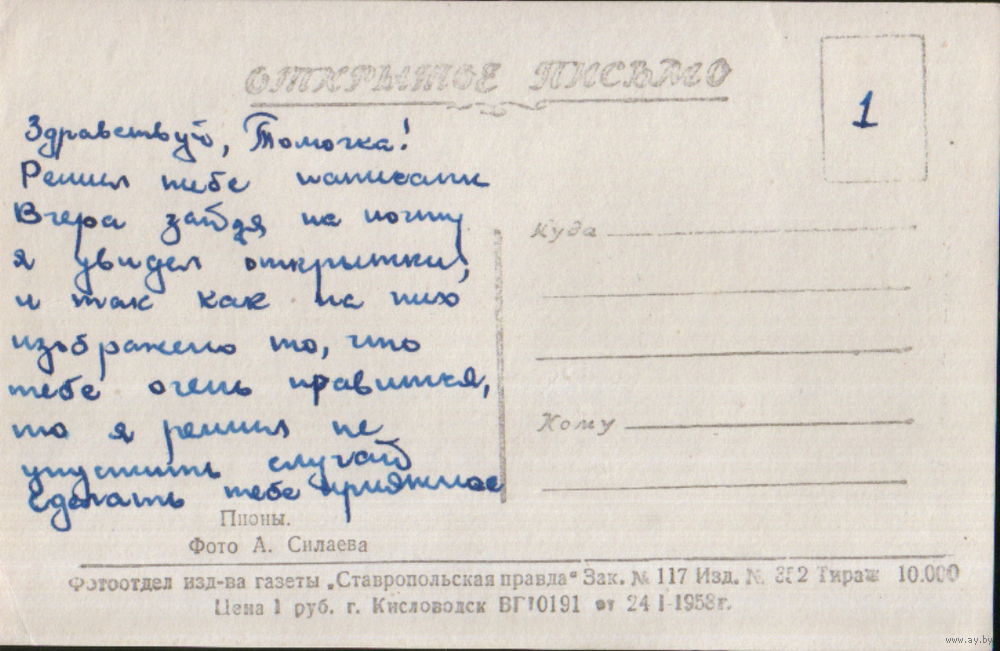 ОТКРЫТОЕ ПИСЬМО
1
Здравствуй, Томочка!
Решил тебе написать
Вчера зайдя на почту
я увидел открытки,
и так как на них
изображено то, что
тебе очень нравится,
то я решил не
упустить случай
сделать тебе приятное
Куда
Кому
Пионы.
Фото А. Силаева
Фотоотдел изд-ва газеты „Ставропольская правда“ Зак. № 117 Изд. № Тираж 10.000
Цена 1 руб. г. Кисловодск ВГ10191 от 24 I-1958г.
www.ay.by